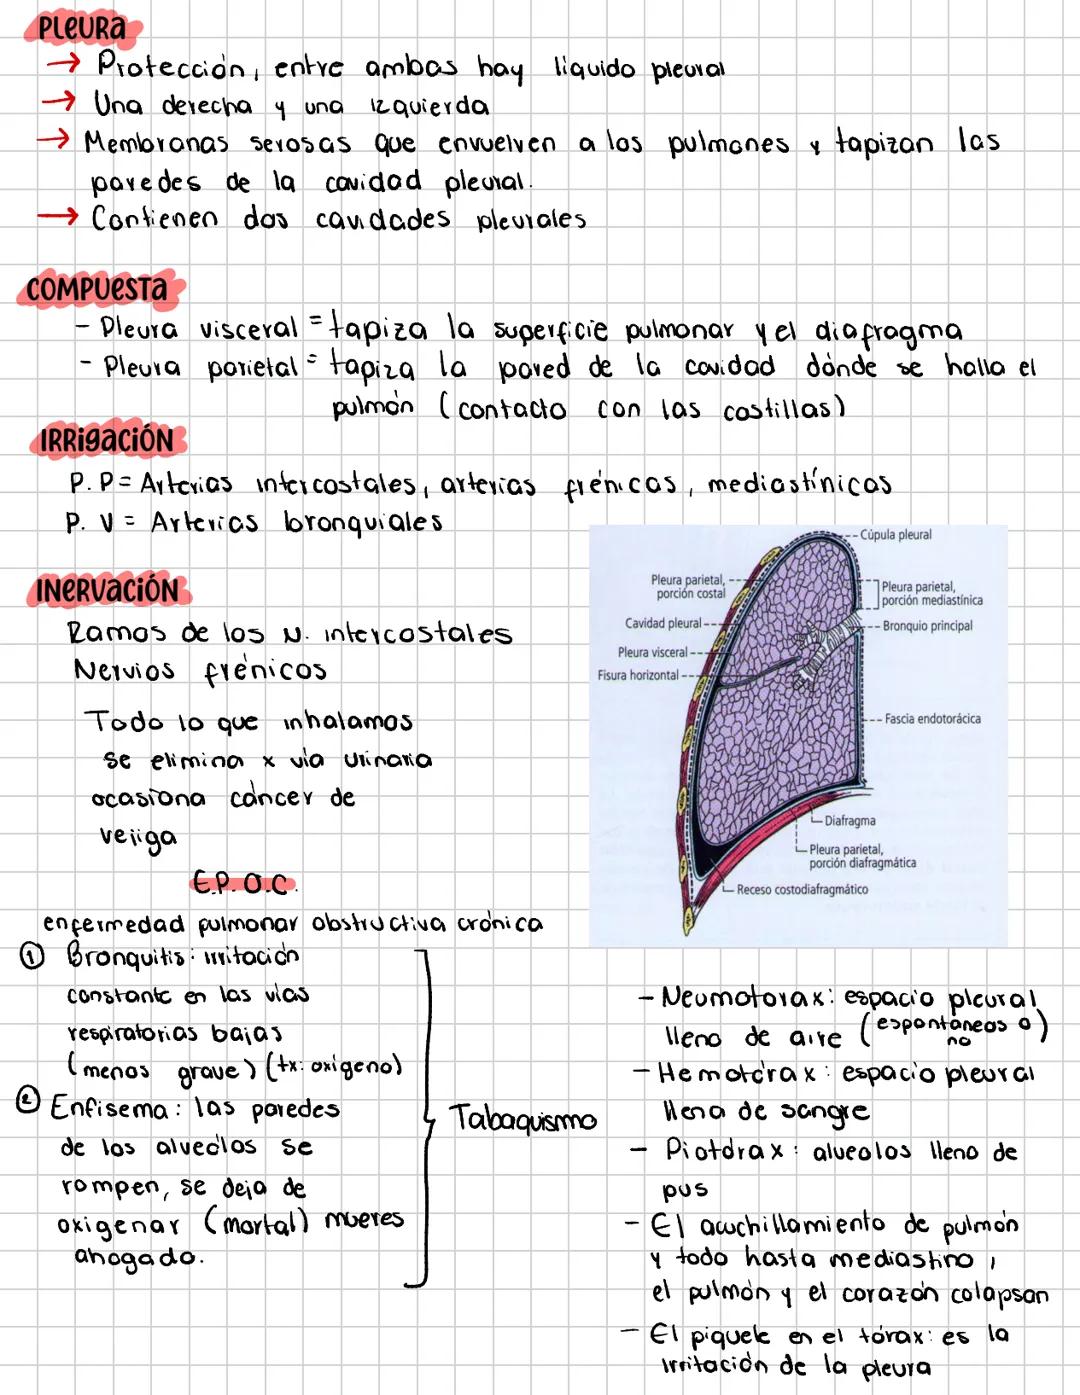 PLEURA
→ Protección, entre ambas hay liquido pleural
→ Una derecha y una izquierda
→ Membranas serosas que envuelven a los pulmones y tapizan las
paredes de la cavidad pleural.
→ Contienen dos cavidades pleurales
COMPUESTA
- Pleura visceral = tapiza la superficie pulmonar y el diafragma
- Pleura parietal = tapiza la pared de la cavidad dónde se halla el
pulmón (contacto con las costillas)
IRRIGACIÓN
P. P = Arterias intercostales, arterias frénicas, mediastínicas
P. V = Arterias bronquiales
INERVACIÓN
Ramos de los N. intercostales
Nervios frénicos
Todo lo que inhalamos
se elimina x vía urinaria
ocasiona cáncer de
vejiga
E.P.O.C.
enfermedad pulmonar obstructiva crónica
① Bronquitis: irritación
constante en las vías
respiratorias bajas
(menos grave) (tx: oxígeno)
② Enfisema: las paredes
de los alveólos se
rompen, se deja de
oxigenar (mortal) mueres
ahogado.
Tabaquismo
Cúpula pleural
Pleura parietal,
porción costal
Pleura parietal,
porción mediastínica
Cavidad pleural
Bronquio principal
Pleura visceral
Fisura horizontal
Fascia endotorácica
Diafragma
Pleura parietal,
porción diafragmática
Receso costodiafragmático
- Neumotorax: espacio pleural
lleno de aire (espontáneos o no)
- Hemotórax: espacio pleural
llena de sangre
- Piotórax: alveolos lleno de
pus
- El acuchillamiento de pulmón
y todo hasta mediastino,
el pulmón y el corazón colapsan
- El piquete en el tórax: es la
irritación de la pleura